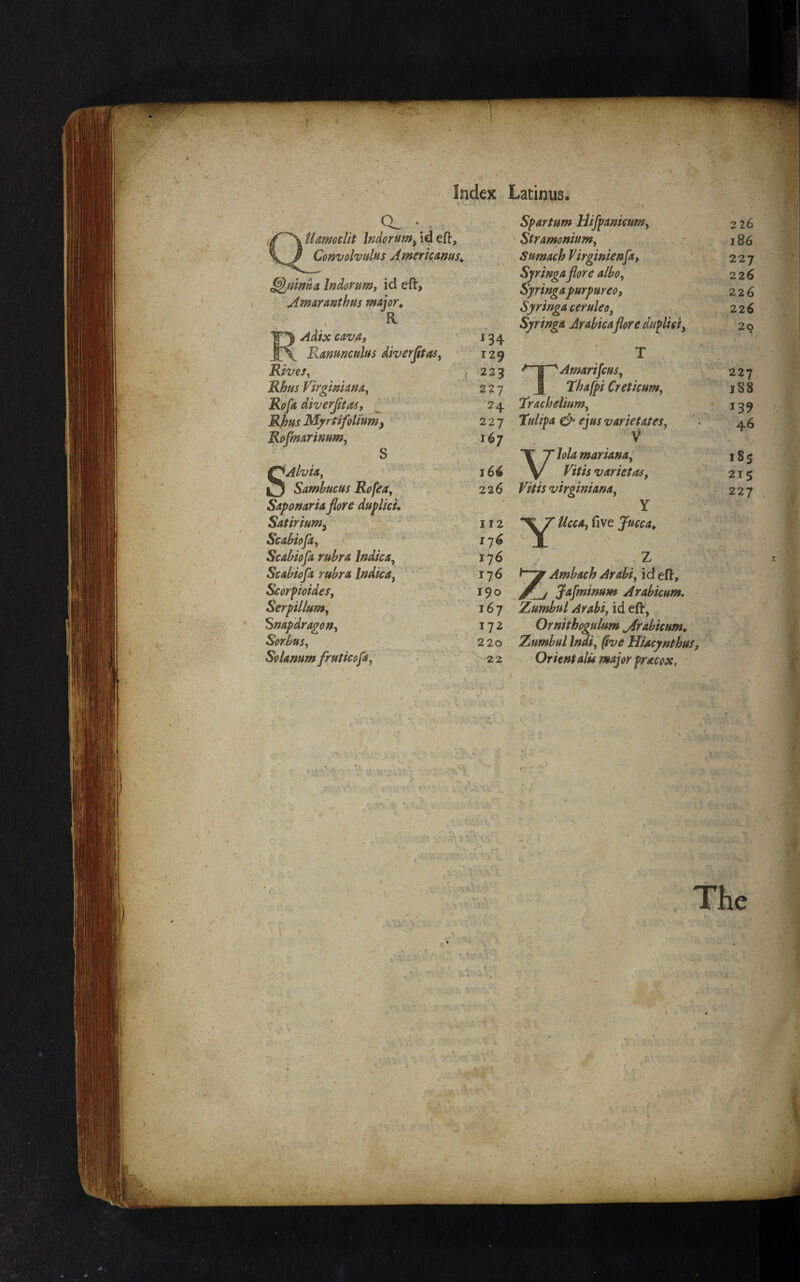 Index Latinus.
Q
QUamoclit Indorum, id eſt,
Convolvulus Americanus.
Quinua Indorum, id eſt,
Amaranthus major.
R
RAdix cava, 134
Ranunculus diverſitas, 129
Rives, 223
Rhus Virginiana, 227
Roſa diverſitas, 24
Rhus Myrtifolium, 227
Roſmarinum, 167
S
SAlvia, 166
Sambucus Roſea, 226
Saponaria flore duplici.
Satirium, 112
Scabioſa, 176
Scabioſa rubra Indica, 176
Scabioſa rubra Indica, 176
Scorpioides, 190
Serpillum, 167
Snapdragon, 172
Sorbus, 220
Solanum fruticoſa, 22
Spartum Hiſpanicum, 226
Stramonium, 186
Sumach Virginienſa, 227
Syringa flore albo, 226
Syringa purpureo, 226
Syringa ceruleo, 226
Syringa Arabica flore duplici, 20
T
TAmariſcus, 227
Thaſpi Creticum, 188
Trachelium, 139
Tulipa & ejus varietates, 46
V
VIola mariana, 185
Vitis varietas, 215
Vitis virginiana, 227
Y
YUcca, ſive Jucca.
Z
ZAmbach Arabi, id eſt,
Jaſminum Arabicum.
Zumbul Arabi, id eſt,
Ornithogulum Arabicum.
Zumbul Indi, ſive Hiacynthus,
Orientalis major præcox.
The